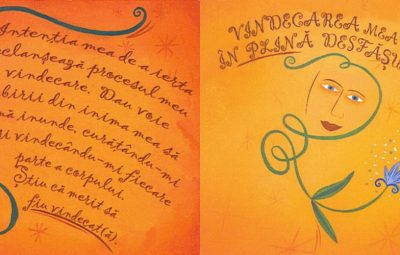 Intenția mea de a ierta
eclanșează procesul meu
vindecare. Dau voie
birii din inima mea să
mă inunde, curățându-mi
și vindecându-mi fiecare
parte a corpului.
Știu că merit să
fiu vindecat(ă).
VINDECAREA MEA
ÎN PLINĂ DESFĂȘU